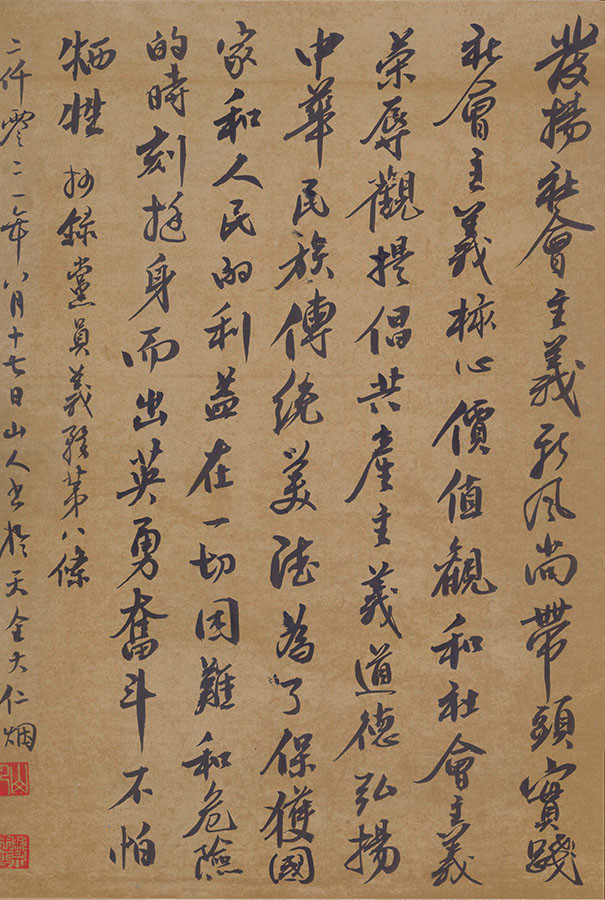 發揚社會主義新風尚帶頭實踐
社會主義核心價值觀和社會主義
榮辱觀提倡共產主義道德弘揚
中華民族傳統美德為了保獲國
家和人民的利益在一切困難和危險
的時刻挺身而出英勇奮斗不怕
牺牲 抄錄黨員義務第八條
二仟零二一年八月十七日山人书於天全大仁烟